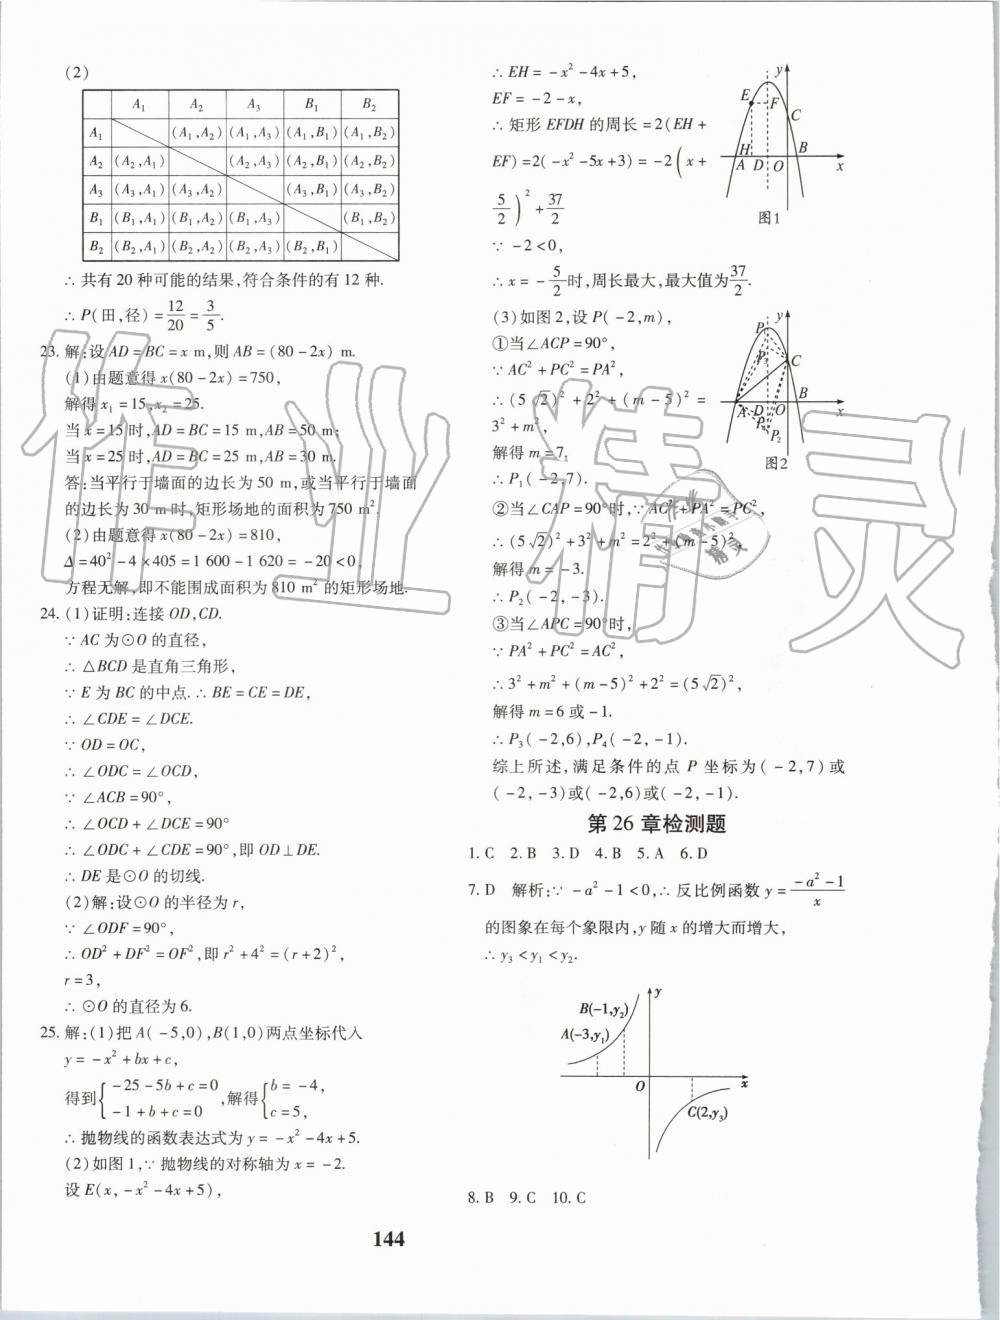 (2)
A₁ A₂ A₃ B₁ B₂
A₁ (A₁,A₂) (A₁,A₃) (A₁,B₁) (A₁,B₂)
A₂ (A₂,A₁) (A₂,A₃) (A₂,B₁) (A₂,B₂)
A₃ (A₃,A₁) (A₃,A₂) (A₃,B₁) (A₃,B₂)
B₁ (B₁,A₁) (B₁,A₂) (B₁,A₃) (B₁,B₂)
B₂ (B₂,A₁) (B₂,A₂) (B₂,A₃) (B₂,B₁)
∴共有20种可能的结果,符合条件的有12种.
∴P(田,径)=12/20=3/5.
23. 解:设AD=BC=x m,则AB=(80-2x) m.
(1)由题意得x(80-2x)=750,
解得x₁=15,x₂=25.
当x=15时,AD=BC=15 m,AB=50 m;
当x=25时,AD=BC=25 m,AB=30 m.
答:当平行于墙面的边长为50 m,或当平行于墙面
的边长为30 m时,矩形场地的面积为750 m².
(2)由题意得x(80-2x)=810,
Δ=40²-4×405=1 600-1 620=-20<0,
方程无解,即不能围成面积为810 m²的矩形场地.
24. (1)证明:连接OD,CD.
∵AC为⊙O的直径,
∴△BCD是直角三角形,
∵E为BC的中点.∴BE=CE=DE,
∴∠CDE=∠DCE.
∵OD=OC,
∴∠ODC=∠OCD,
∵∠ACB=90°,
∴∠OCD+∠DCE=90°
∴∠ODC+∠CDE=90°,即OD⊥DE.
∴DE是⊙O的切线.
(2)解:设⊙O的半径为r,
∵∠ODF=90°,
∴OD²+DF²=OF²,即r²+4²=(r+2)²,
r=3,
∴⊙O的直径为6.
25. 解:(1)把A(-5,0),B(1,0)两点坐标代入
y=-x²+bx+c,
得到{-25-5b+c=0 -1+b+c=0,解得{b=-4, c=5,
∴抛物线的函数表达式为y=-x²-4x+5.
(2)如图1,∵抛物线的对称轴为x=-2.
设E(x,-x²-4x+5),
∴EH=-x²-4x+5,
EF=-2-x,
∴矩形EFDH的周长=2(EH+
EF)=2(-x²-5x+3)=-2(x+
5/2)²+37/2
∵-2<0,
∴x=-5/2时,周长最大,最大值为37/2.
y E F C H A D O B x
图1
(3)如图2,设P(-2,m),
①当∠ACP=90°,
∵AC²+PC²=PA²,
∴(5√2)²+2²+(m-5)²=
3²+m²,
解得m=7,
∴P₁(-2,7).
P₁ y P₃ C A D O B x P₄ P₂
图2
②当∠CAP=90°时,∵AC²+PA²=PC²,
∴(5√2)²+3²+m²=2²+(m-5)²,
解得m=-3.
∴P₂(-2,-3).
③当∠APC=90°时,
∵PA²+PC²=AC²,
∴3²+m²+(m-5)²+2²=(5√2)²,
解得m=6或-1.
∴P₃(-2,6),P₄(-2,-1).
综上所述,满足条件的点P坐标为(-2,7)或
(-2,-3)或(-2,6)或(-2,-1).
第26章检测题
1. C 2. B 3. D 4. B 5. A 6. D
7. D 解析:∵-a²-1<0,∴反比例函数y=(-a²-1)/x
的图象在每个象限内,y随x的增大而增大,
∴y₃<y₁<y₂.
y
B(-1,y₂)
A(-3,y₁)
O x
C(2,y₃)
8. B 9. C 10. C
144
作业精灵